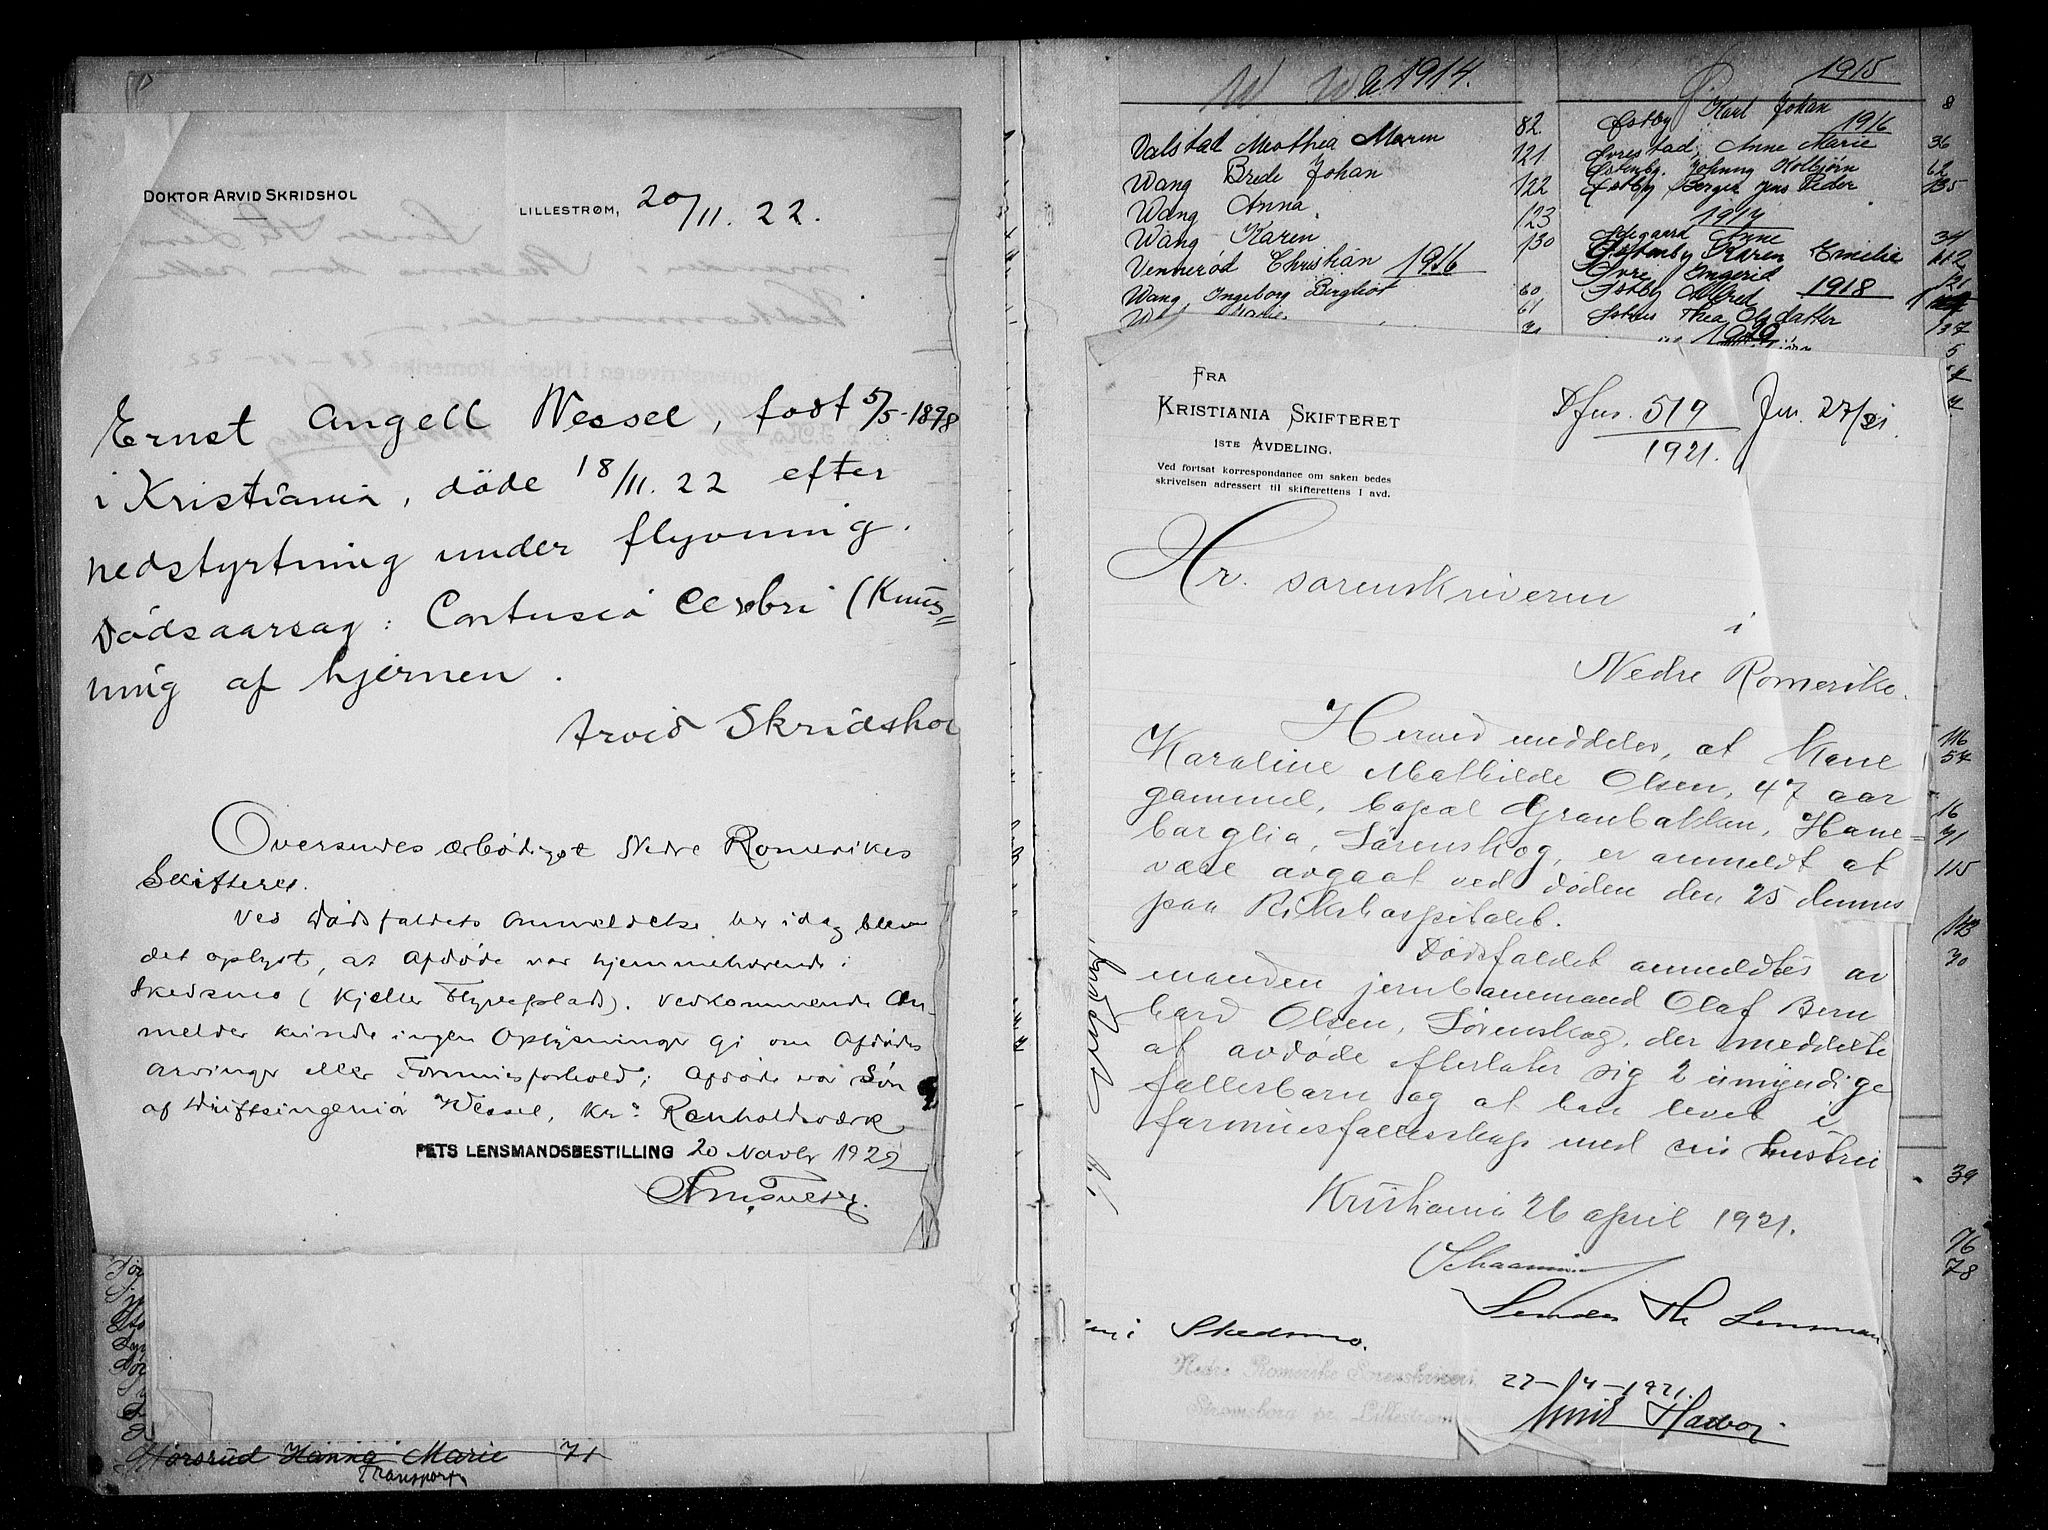 DOKTOR ARVID SKRIDSHOL
LILLESTRØM, 20/11. 22.
Ernst Angell Wessel, født 5/5-1898
i Kristiania, døde 18/11. 22 efter
nedstyrtning under flyvning.
Dødsaarsag: Contusio cerebri (Knus=
ning af hjernen.
Arvid Skridshol
Oversendes ærbødigst Nedre Romerikes
Skifteret.
Ved Dødsfaldets Anmeldelse her idag blev
det oplyst, at Afdøde var hjemmehørende i
Skedsmo (Kjeller Flyveplads). Vedkommende An-
melder kunde ingen Oplysninger gi om Afdødes
Arvinger eller Formuesforhold; Afdøde var Søn
af Driftsingeniør Wessel, Kr.a Renholdsværk
FETS LENSMANDSBESTILLING 20 Novbr 1922
Hørsrud Hanna Marie 71
Transport
W W 1914.
Valstad Mathea Maren 82
Wang Brede Johan 121
Wang Anna 122
Wang Karen 123
Vennerød Christian 130
1916
Wang, Ingeborg Bergliot 60
61
1915
Østby Karl Johan 8
1916
Øvrestad, Anne Marie 36
Østenby, Johnny Kolbjørn 62
Østby Berger Jens Peder 135
1917
Ødegaard Anne 34
Østenby Karen Emilie 112
Øvre Ingerid 121
Østby Alfred 1918
Thea Olsdatter 137
1920
5
FRA
KRISTIANIA SKIFTERET
1STE AVDELING.
Ved fortsat korrespondance om saken bedes
skrivelsen adressert til skifterettens I avd.
Dfns. 519 Jnr. 27/21.
1921.
Hr. sorenskriveren
i
Nedre Romerike.
Herved meddeles, at Kone
Karoline Mathilde Olsen, 47 aar
gammel, bopæl Granbakken, Hane=
borglia, Lørenskog, er anmeldt at
være avgaat ved døden den 25 dennes
paa Rikshospitalet.
Dødsfaldet anmeldtes av
manden jernbanemand Olaf Bern
hard Olsen, Lørenskog, der meddelte
at avdøde efterlater sig 2 umyndige
fællesbarn og at han levet i
formuesfællesskap med sin hustru
Kristiania 26 april 1921.
Sendes Hr. Lensman
i Skedsmo.
Nedre Romerike Sorenskriveri
Strømsborg pr. Lillestrøm
27-/4-1921.
116
54
16
71
115
123
30
39
76
78